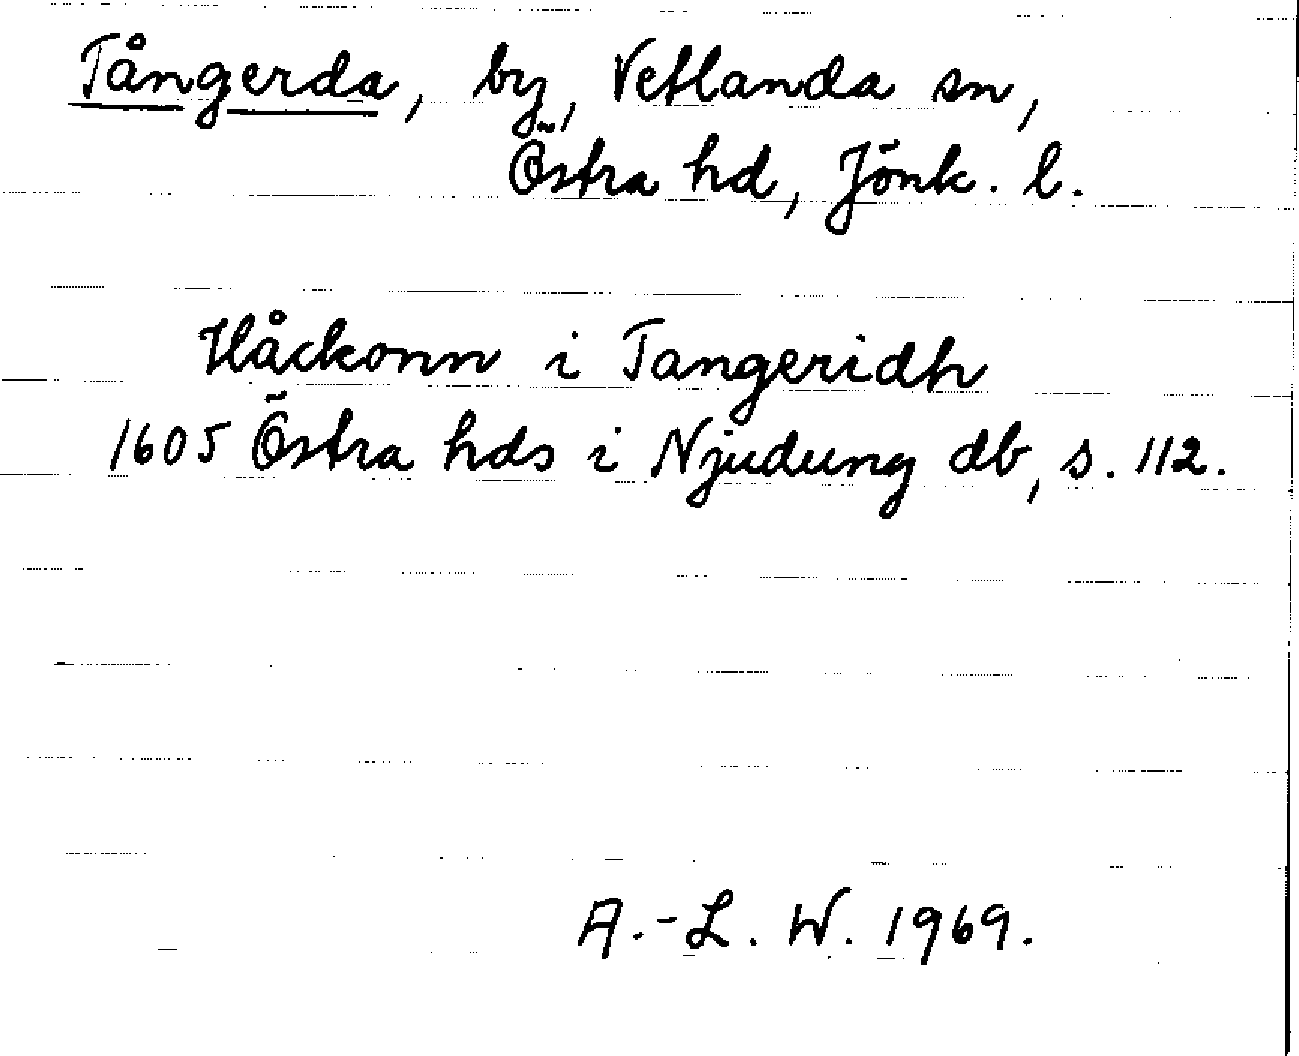 Tångerda, by, Vetlanda sn,
Östra hd, Jönk. l.
Håckonn i Tangeridh
1605 Östra hds i Njudung db, s. 112.
A.-L. W. 1969.